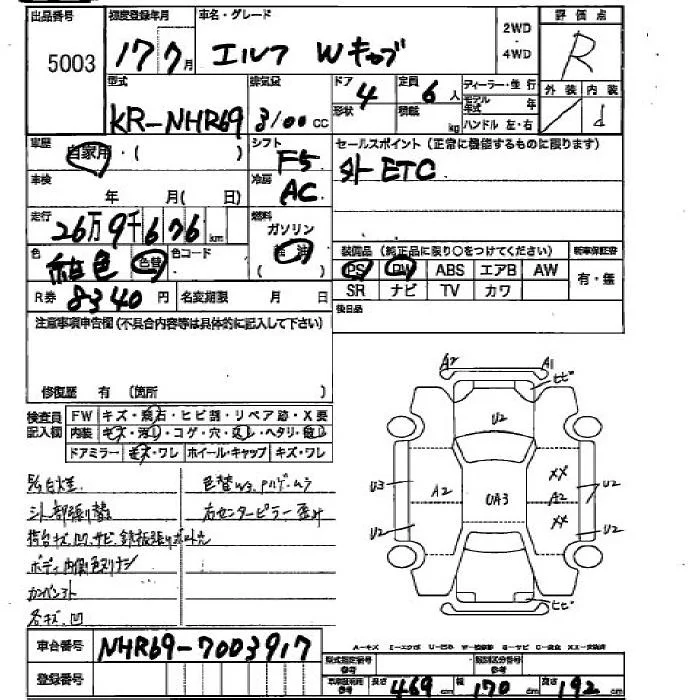 出品番号 5003
初度登録年月 17 7月
車名・グレード エルフ Wキャブ
2WD ・ 4WD
評価点 R
型式 KR-NHR69
排気量 3100 CC
ドア 4 形状
定員 6人 積載 kg
ディーラー・並行
モデル年式 年
ハンドル 左・右
外装 内装 d
車歴 自家用・( )
シフト F5
セールスポイント(正常に機能するものに限ります)
外 ETC
車検 年 月(日)
冷房 AC
走行 26万9千676km
燃料 ガソリン 軽油 ( )
色 純色 色替 色コード
装備品(純正品に限り○をつけてください) 新車保証書
PS PW ABS エアB AW
SR ナビ TV カワ
有・無
R券 8340円 名変期限 月 日
後日品
注意事項申告欄(不具合内容等は具体的に記入して下さい)
修復歴 有(箇所 )
検査員記入欄
FW キズ・飛石・ヒビ割・リペア跡・X要
内装 キズ・汚レ・コゲ・穴・スレ・ヘタリ・
ドアミラー キズ・ワレ ホイール・キャップ キズ・ワレ
シート部張り替
荷台キズ、凹、サビ、鉄板張りボルト穴
ボディ内側色ヌリナシ
各キズ、凹
右センターピラー
A2 A1 ヒビ
U2
U3 A2 UA3 XX A2 U2
U2 XX U2
ヒビ
車台番号 NHR69-7003917
登録番号
A-キズ I-エクボ U-凹み
型式指定番号 参考
類別区分番号 参考
長さ 469cm 幅 170cm 高さ 192cm